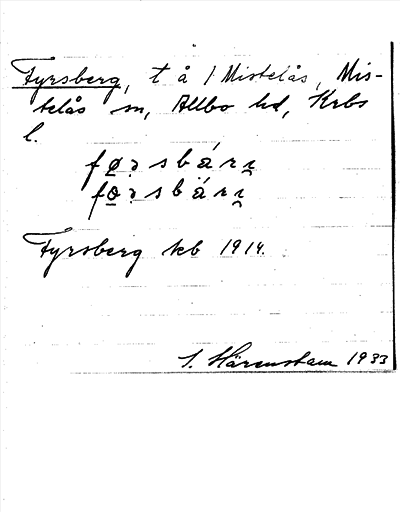 Fyrsberg, t å 1 Mistelås, Mis-
telås sn, Allbo hd, Krbs
l.
fø̱rsbárı̨
fo̱rsbä́rı̨
Fyrsberg kb 1914.
S. Härenstam 1933